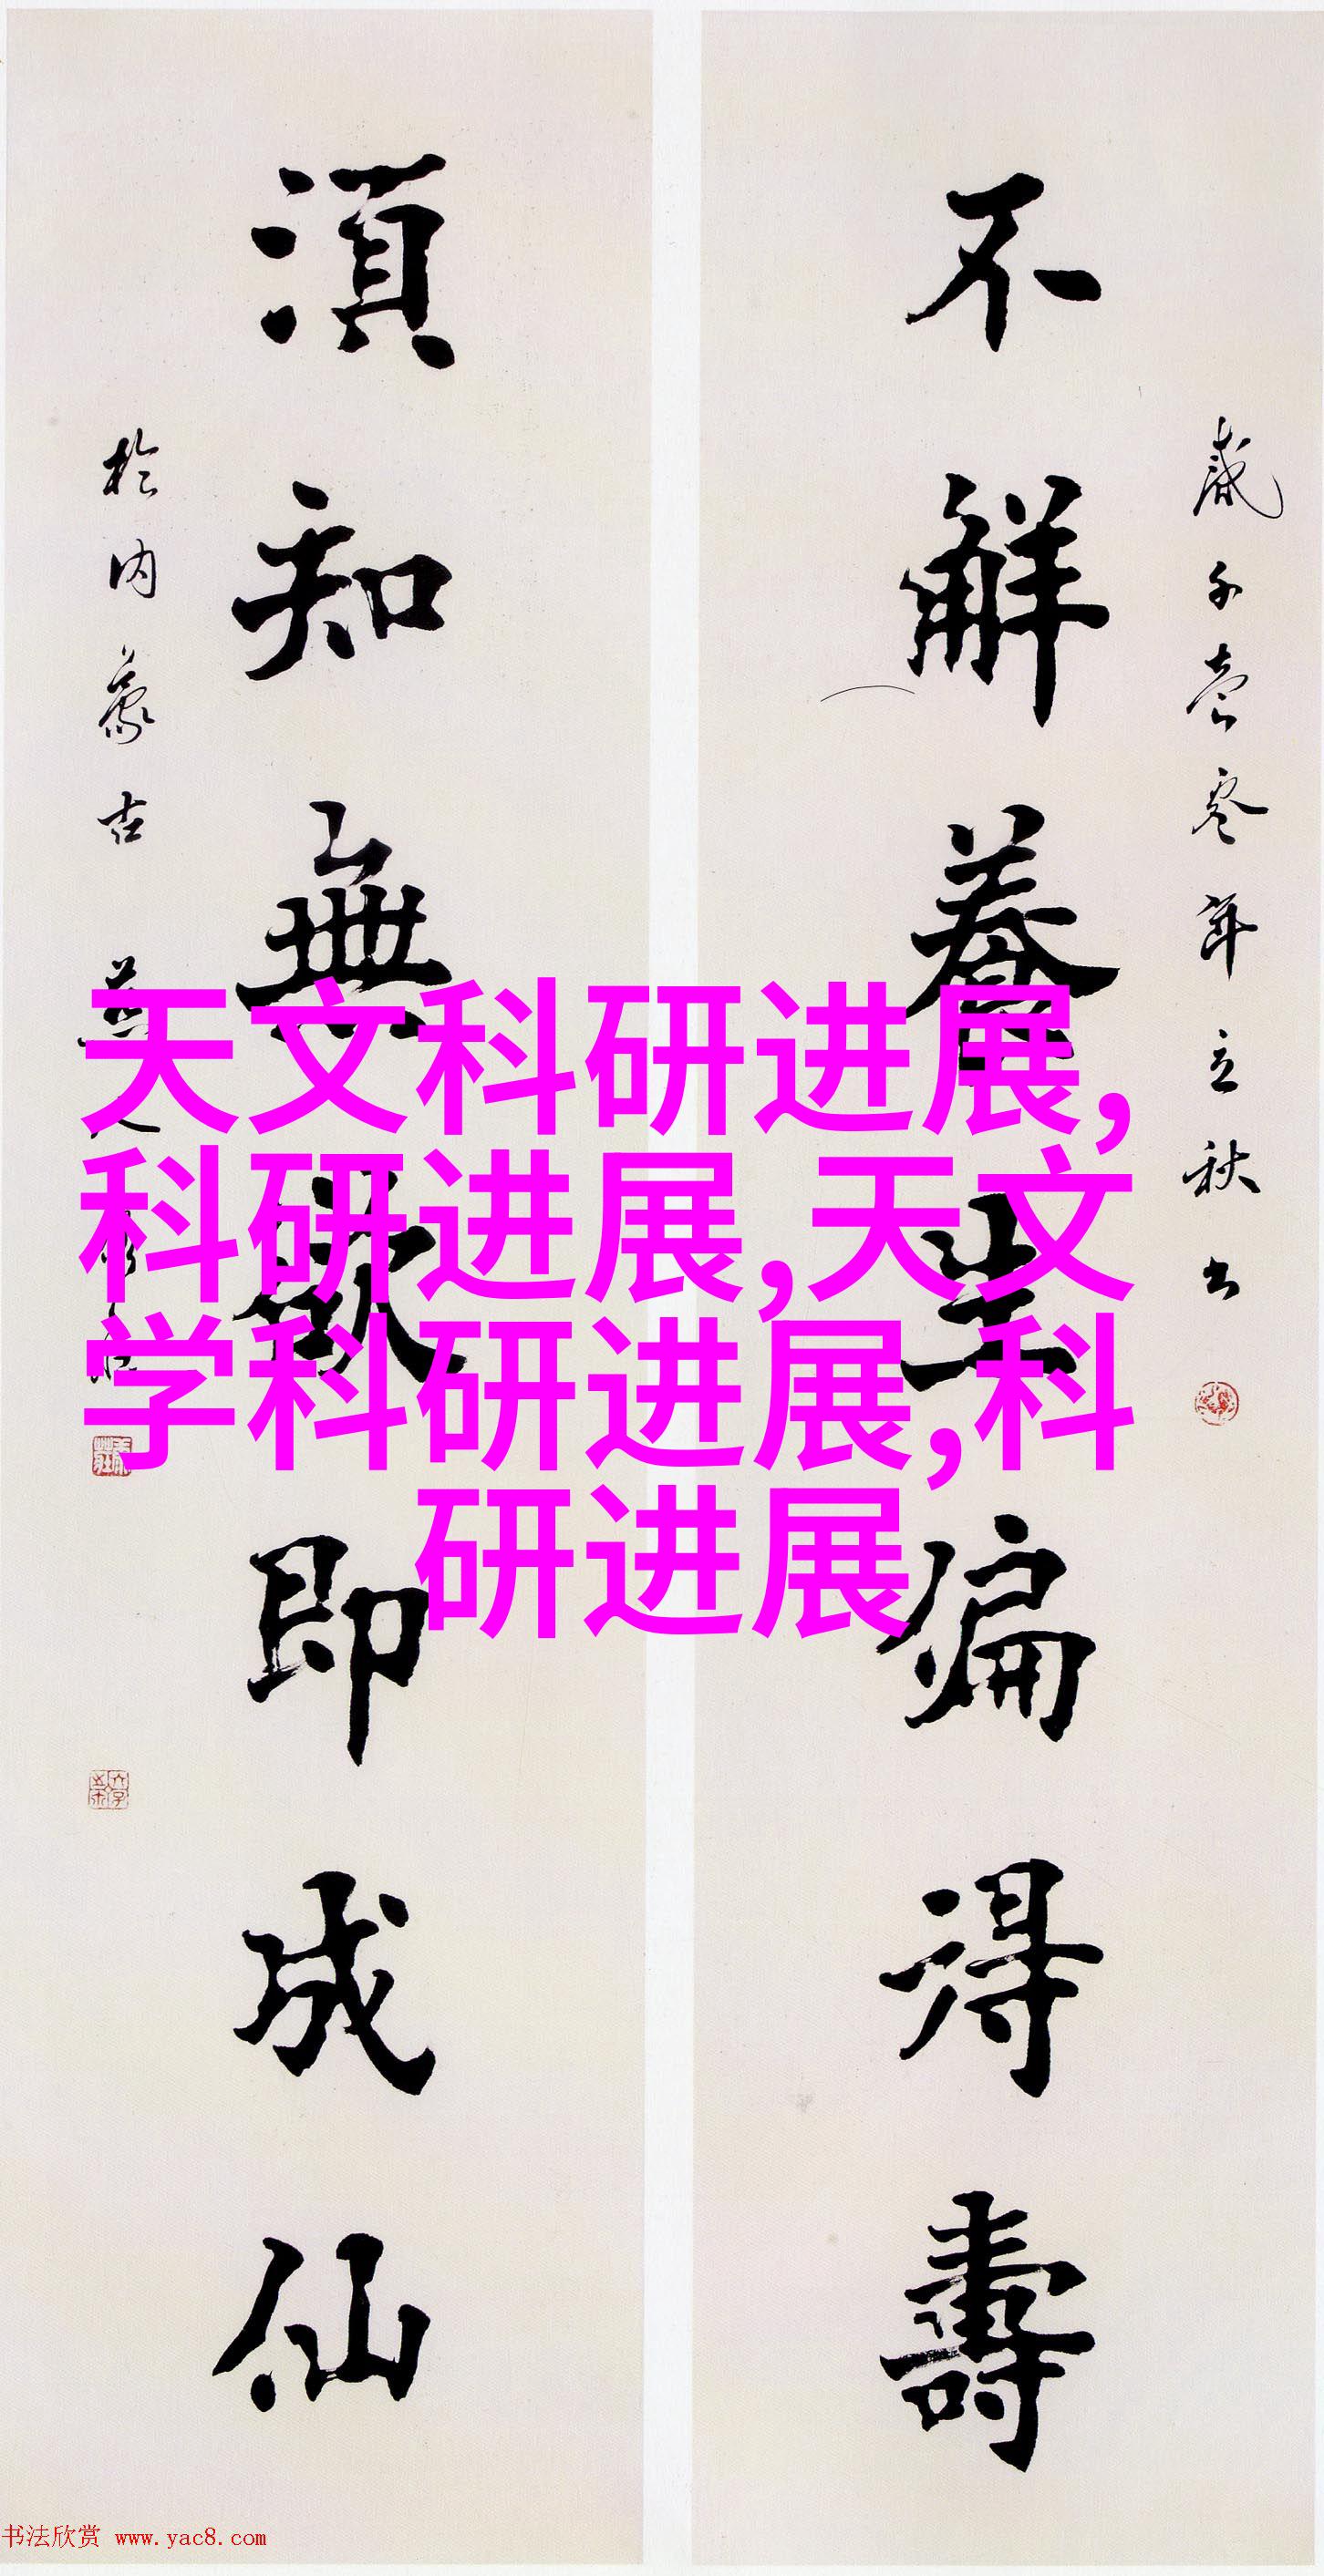 不解养生偏得寿
须知無欲即成仙
贰千壹零年立秋书
於内蒙古
天文科研进展,
科研进展,天文
学科研进展,科
研进展
书法欣赏 www.yac8.com